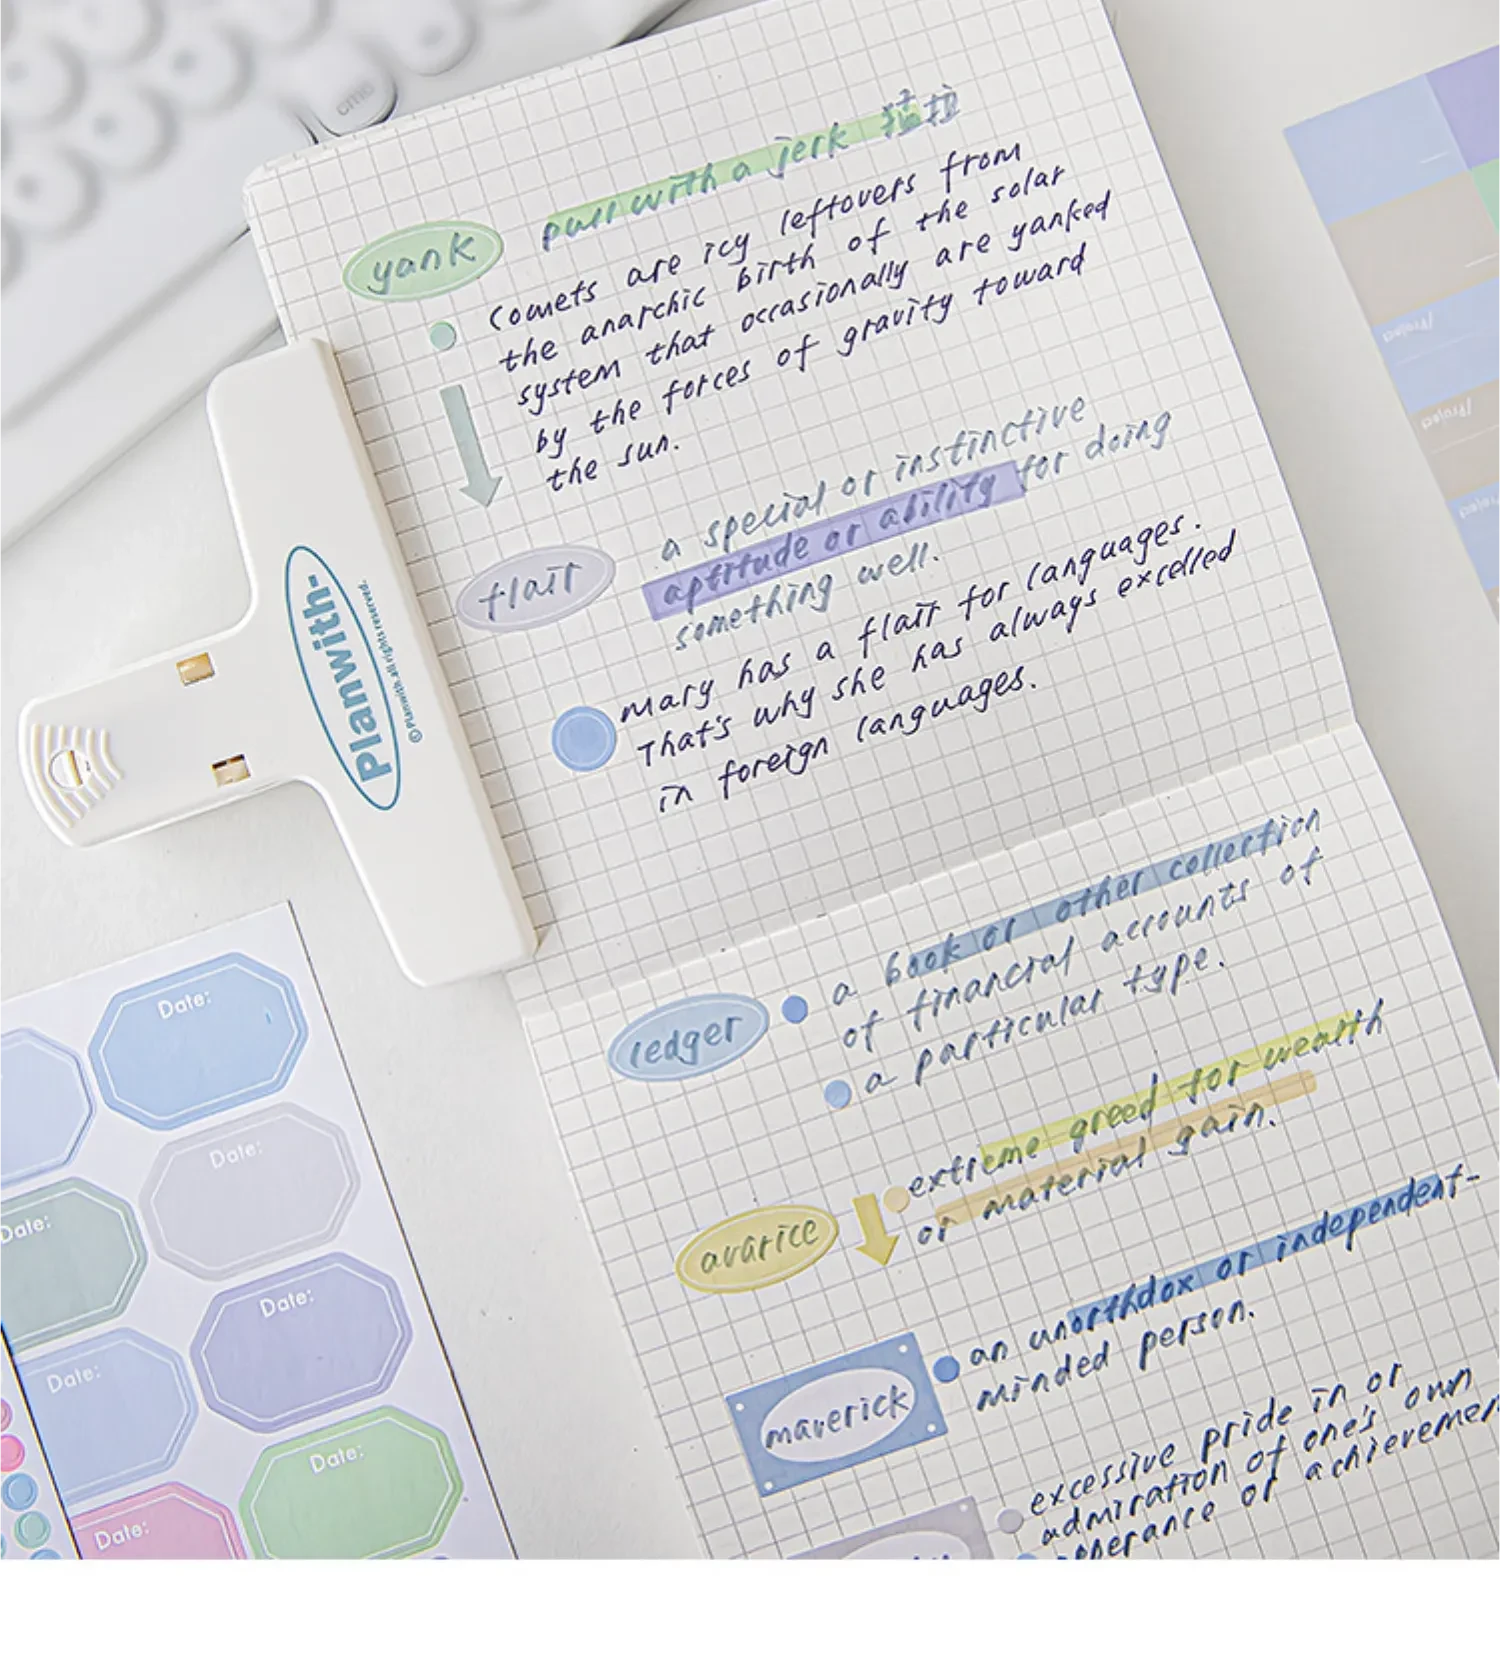 cmd
pull with a jerk 猛拉
yank
Comets are icy leftovers from
the anarchic birth of the solar
system that occasionally are yanked
by the forces of gravity toward
the sun.
a special or instinctive
aptitude or ability for doing
something well.
flair
Mary has a flair for languages.
That's why she has always excelled
in foreign languages.
Planwith-
© Planwith.all rights reserved.
a book or other collection
of financial accounts of
a particular type.
ledger
extreme greed for wealth
or material gain.
avarice
an unorthdox or independent-
minded person.
maverick
excessive pride in or
admiration of one's own
or achievemen
Date:
Date:
Date:
Date:
Date:
Date:
Date:
/Project
/Project